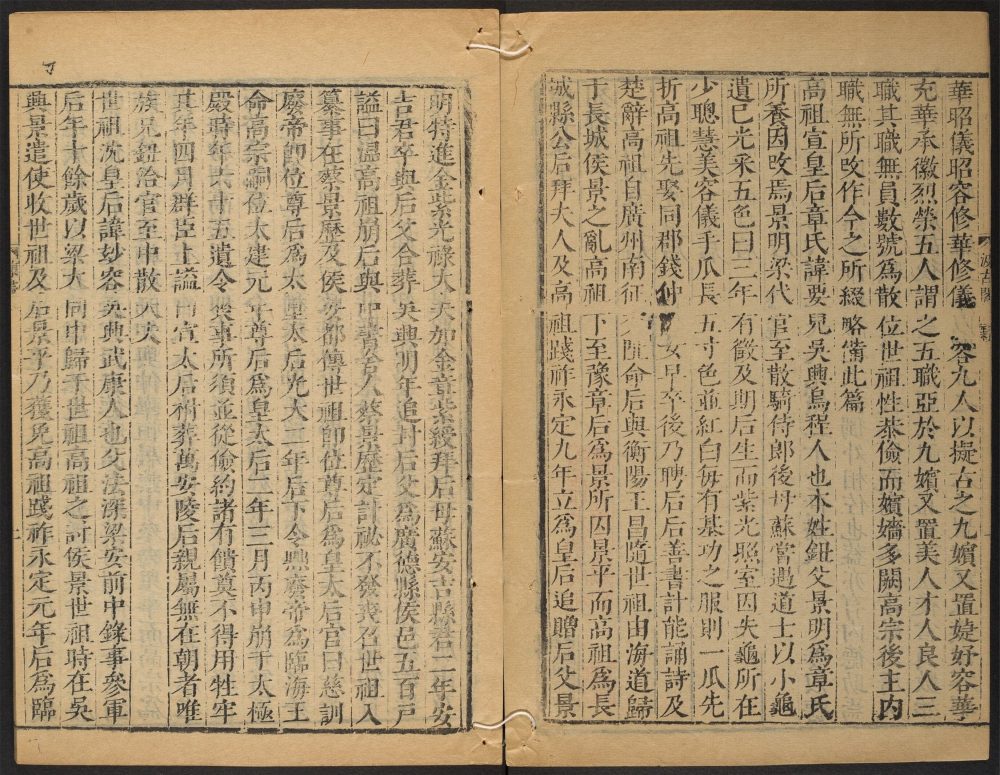 華昭儀昭容修華修儀 容九人以擬古之九嬪又置婕妤容華
充華承徽烈榮五人謂之五職亞於九嬪又置美人才人良人三
職其職無員數號爲散位世祖性恭儉而嬪嬙多闕高宗後主內
職無所改作今之所綴略備此篇
高祖宣皇后章氏諱要兒吳興烏程人也本姓鈕父景明爲章氏
所養因改焉景明梁代官至散騎侍郎後母蘇嘗遇道士以小龜
遺己光采五色曰三年有徵及期后生而紫光照室因失龜所在
少聰慧美容儀手爪長五寸色並紅白每有朞功之服則一爪先
折高祖先娶同郡錢仲 女早卒後乃聘后后善書計能誦詩及
楚辭高祖自廣州南征 阯命后與衡陽王昌隨世祖由海道歸
于長城侯景之亂高祖下至豫章后爲景所囚景平而高祖爲長
城縣公后拜夫人及高祖踐祚永定九年立爲皇后追贈后父景
明特進金紫光祿大夫加金章紫綬拜后母蘇安吉縣君二年安
吉君卒與后父合葬吳興明年追封后父爲廣德縣侯邑五百戶
謚曰溫高祖崩后與中書舍人蔡景歷定計祕不發喪召世祖入
纂事在蔡景歷及侯安都傳世祖即位尊后爲皇太后宮曰慈訓
廢帝即位尊后爲太皇太后光大二年后下令黜廢帝爲臨海王
命高宗嗣位太建元年尊后爲皇太后二年三月丙申崩于太極
殿時年六十五遺令喪事所須並從儉約諸有饋奠不得用牲牢
其年四月群臣上謚曰宣太后祔葬萬安陵后親屬無在朝者唯
族兄鈕洽官至中散大夫
世祖沈皇后諱妙容吳興武康人也父法深梁安前中錄事參軍
后年十餘歲以梁大同中歸于世祖高祖之討侯景世祖時在吳
興景遣使收世祖及后景平乃獲免高祖踐祚永定元年后爲臨
汲古閣